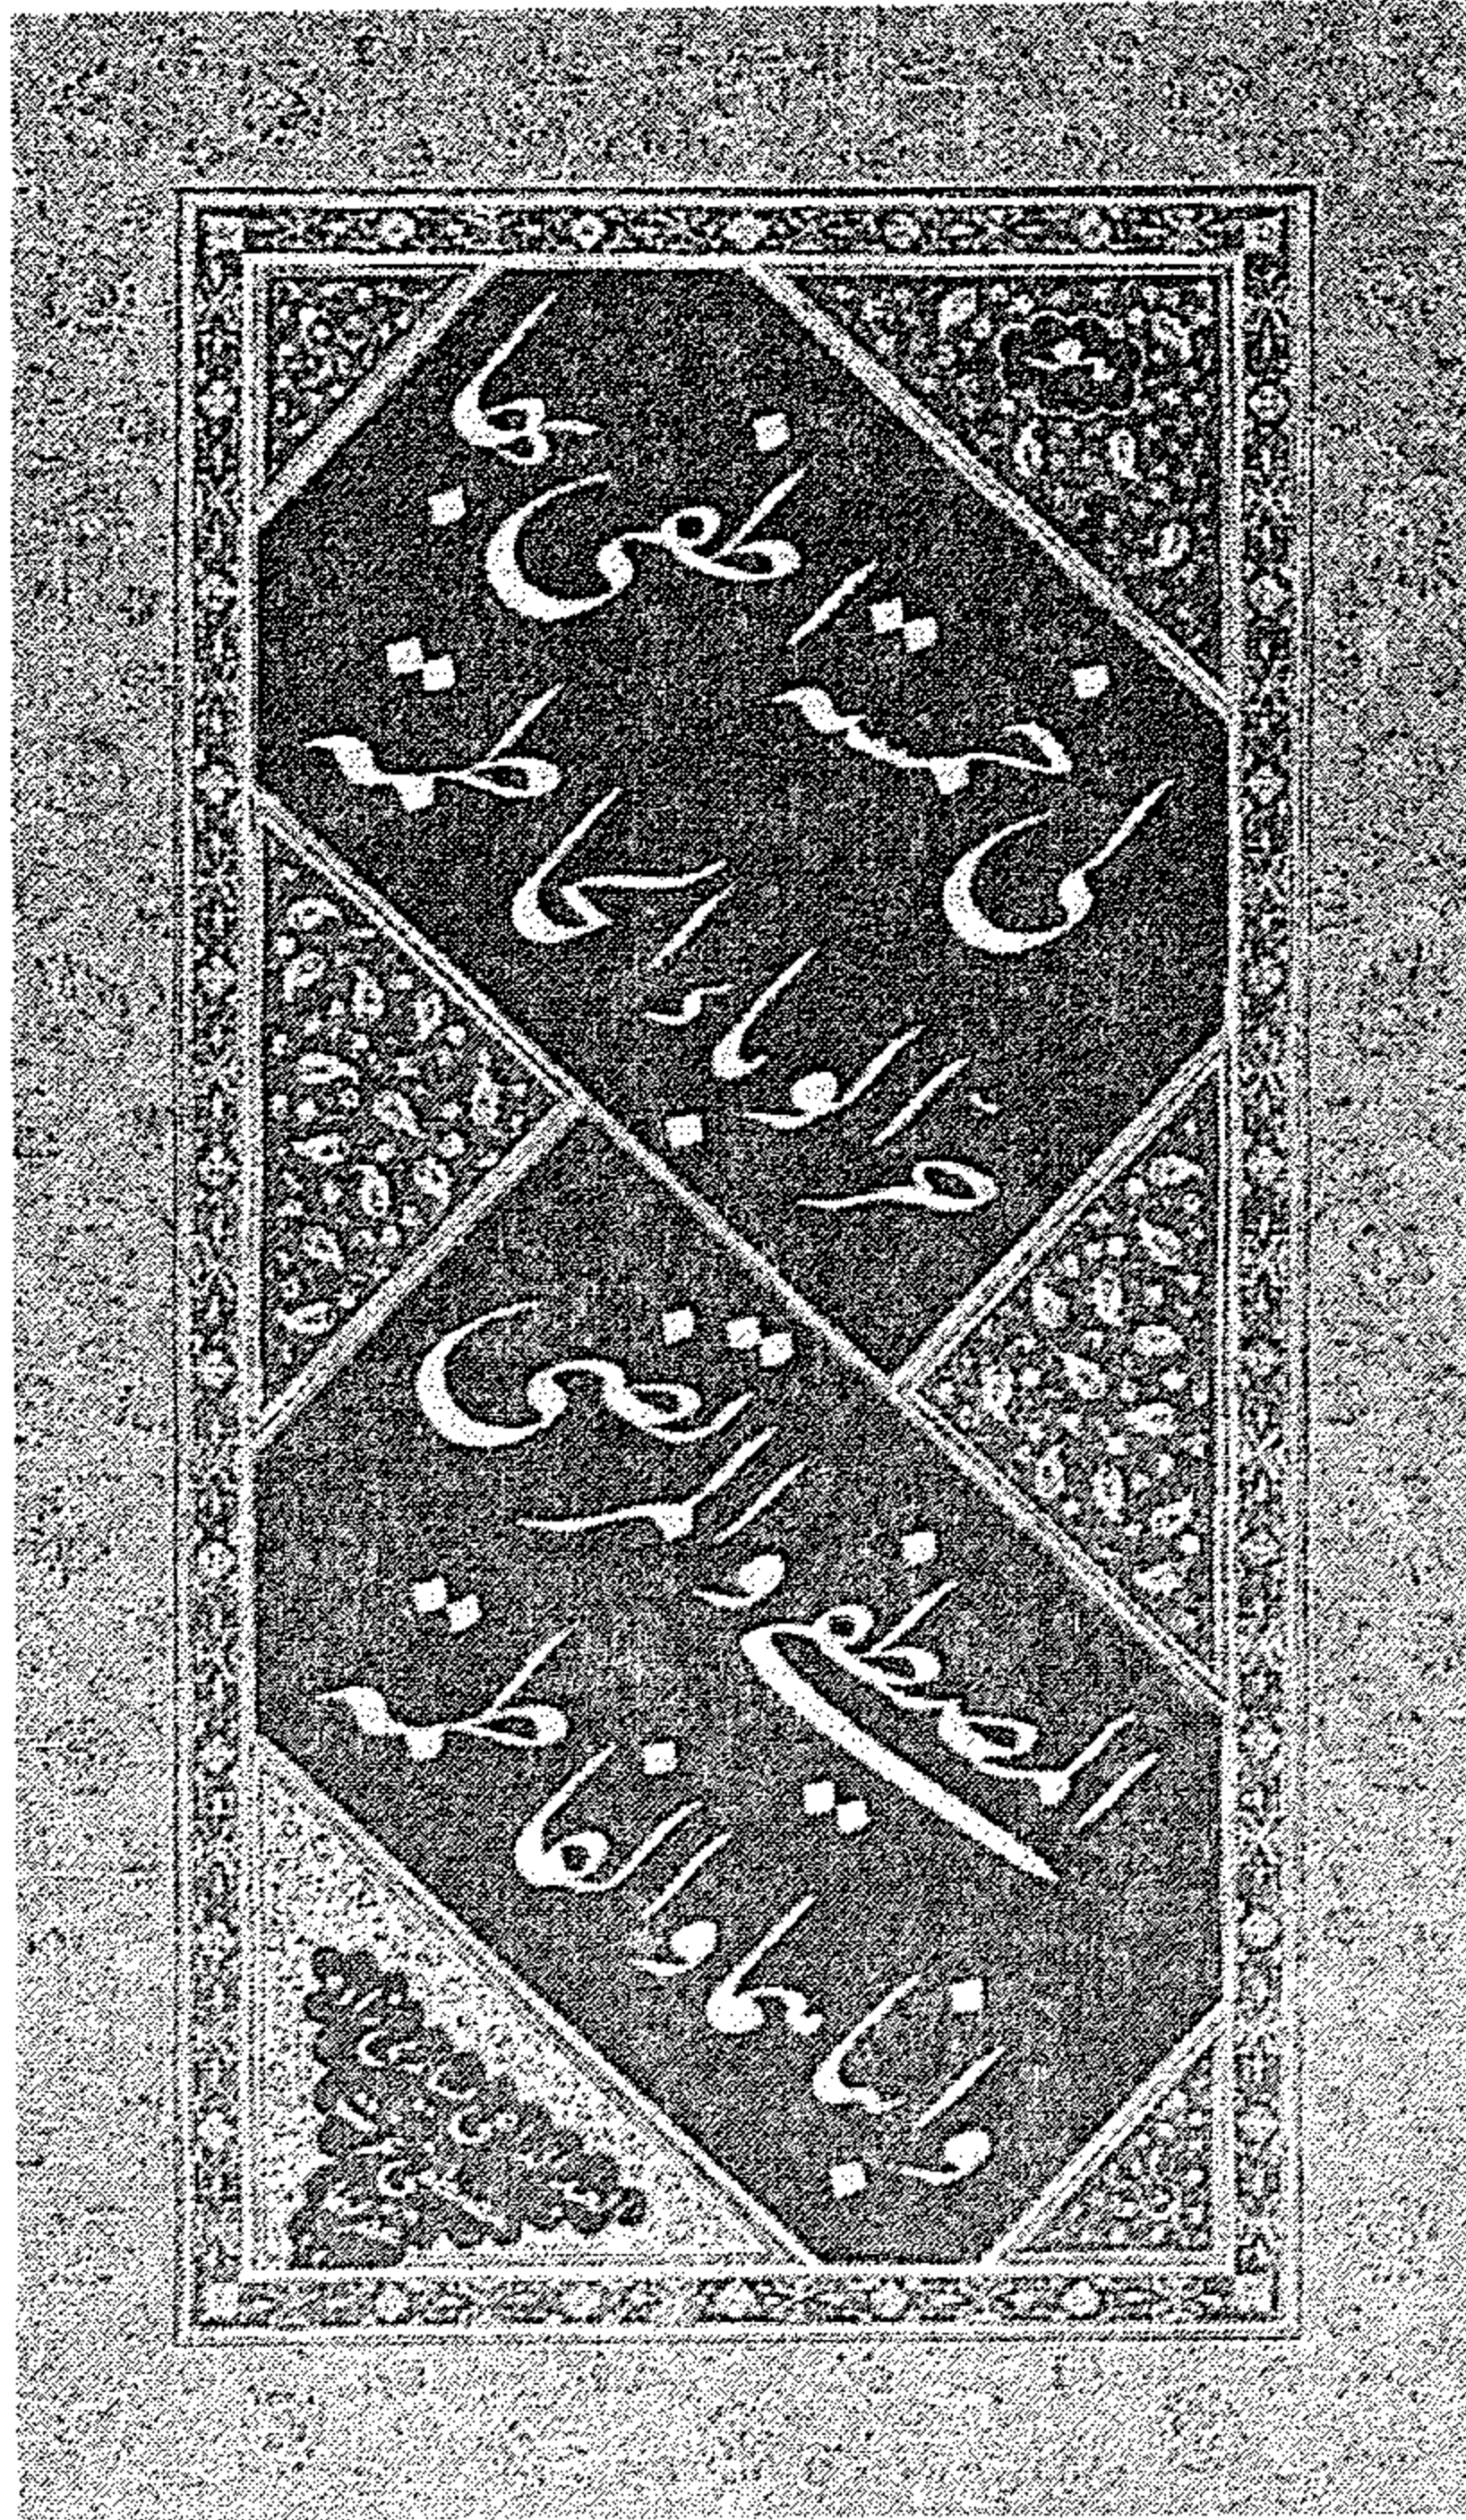 لی خمسة اطفی بها
حر الوباء الحاطمة
المصطفی و المرتضی
و ابناهما و الفاطمة